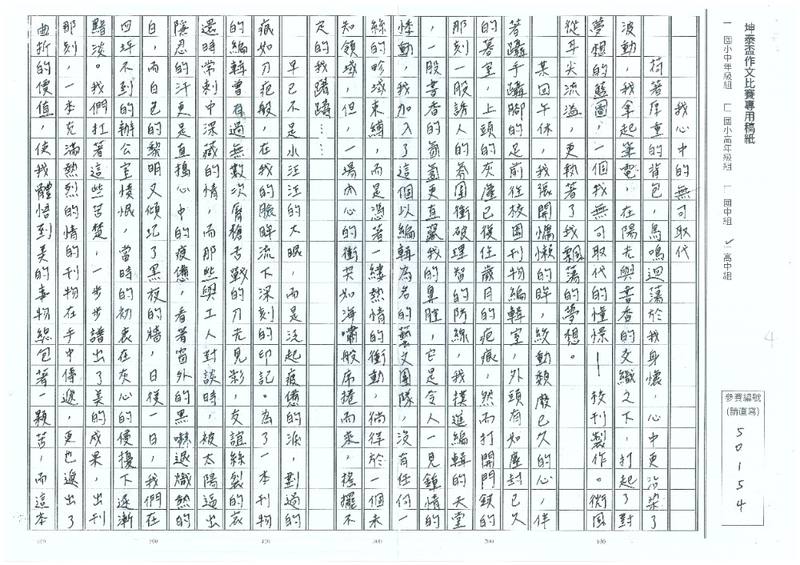 坤泰盃作文比賽專用稿紙
一 國小中年級組 ㄈ 國小高年級組 ㄧ 國中組 ✓ 高中組
參賽編號
(請直寫)
50154
4
我心中的無可取代
荷著厚重的背包，鳥鳴迴蕩於我身懷，心中更沾染了
波動，我拿起筆電，在陽光與書香的交織之下，打起了對
夢想的藍圖，一個我無可取代的憧憬——校刊製作。微風
從耳尖流溢，更熱著了我飄蕩的夢想。
某回午休，我張開慵懶的眸，絞動頹廢已久的心，伴
著躡手躡腳的足前往校園刊物編輯室，外頭有如塵封已久
的署室，上頭的灰僅已後住歲月的疤痕，然而打開門鎖的
那刻，一股誘人的氛圍衝破理智的防線，我摸進編輯的天堂
，一股書香的氤氳更直竄我的鼻腔，它是令人一見鍾情的
悸動，我加入了這個以編輯為名的藝文團隊，沒有任何一
絲的吟域束縛，而是憑著一縷熱情的衝動，徜徉於一個未
知領域，但，一場內心的衝突如海嘯般席捲而來，搖擺不
定的我躊躇…
早已不是水汪汪的大眼，而是泛起疲憊的淚，劃過的
痕如刀疤般，在我的臉畔流下深刻的印記。為了一本刊物
的編輯曾有過無數次脣槍舌戰的刀光見影，友誼絲裂的哀
還時常刺中深藏的情，而那些與工人對談時，被太陽逼出
隱忍的汗更是直搗心中的疲憊，看著窗外的黑嚇退熾熱的
日，而白色的黎明又傾圮了黑夜的牆，日復一日，我們在
四坪不到的辦公室憤慨，當時的初衷在灰心的侵擾下逐漸
黯淡。我們扛著這些苦楚，一步步譜出了美的成果，出刊
那刻，一本充滿熱烈的情的刊物在手中傳遞，更也遞出了
曲折的價值，使我體悟到美的事物總包著一顆苦，而這本